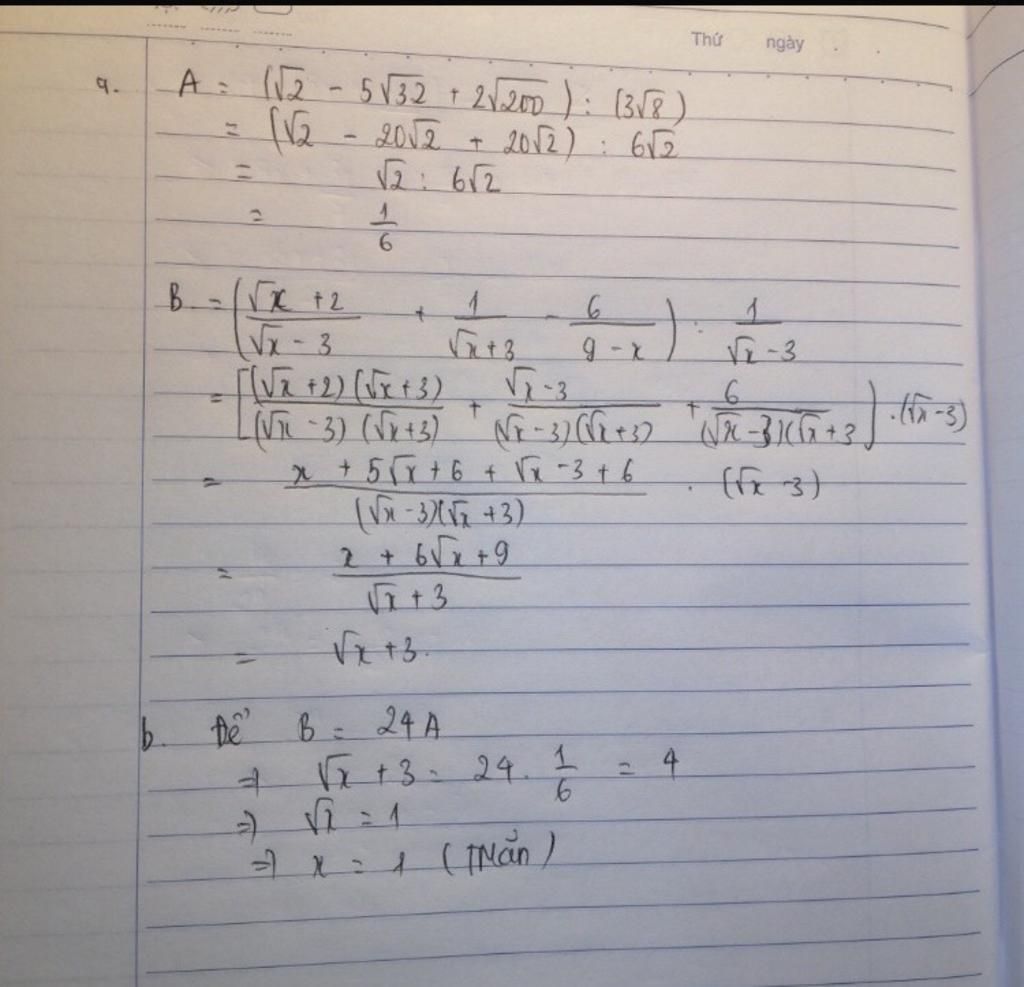 Thứ ngày
a. A = (√2 - 5√32 + 2√200) : (3√8)
= (√2 - 20√2 + 20√2) : 6√2
= √2 : 6√2
= 1/6
B = ((√x + 2)/(√x - 3) + 1/(√x + 3) - 6/(9 - x)) : 1/(√x - 3)
= [(√x + 2)(√x + 3)/(√x - 3)(√x + 3) + (√x - 3)/(√x - 3)(√x + 3) + 6/(√x - 3)(√x + 3] . (√x - 3)
= (x + 5√x + 6 + √x - 3 + 6)/(√x - 3)(√x + 3) . (√x - 3)
= (x + 6√x + 9)/(√x + 3)
= √x + 3.
b. Để B = 24A
⇒ √x + 3 = 24 . 1/6 = 4
⇒ √x = 1
⇒ x = 1 (TMãn)